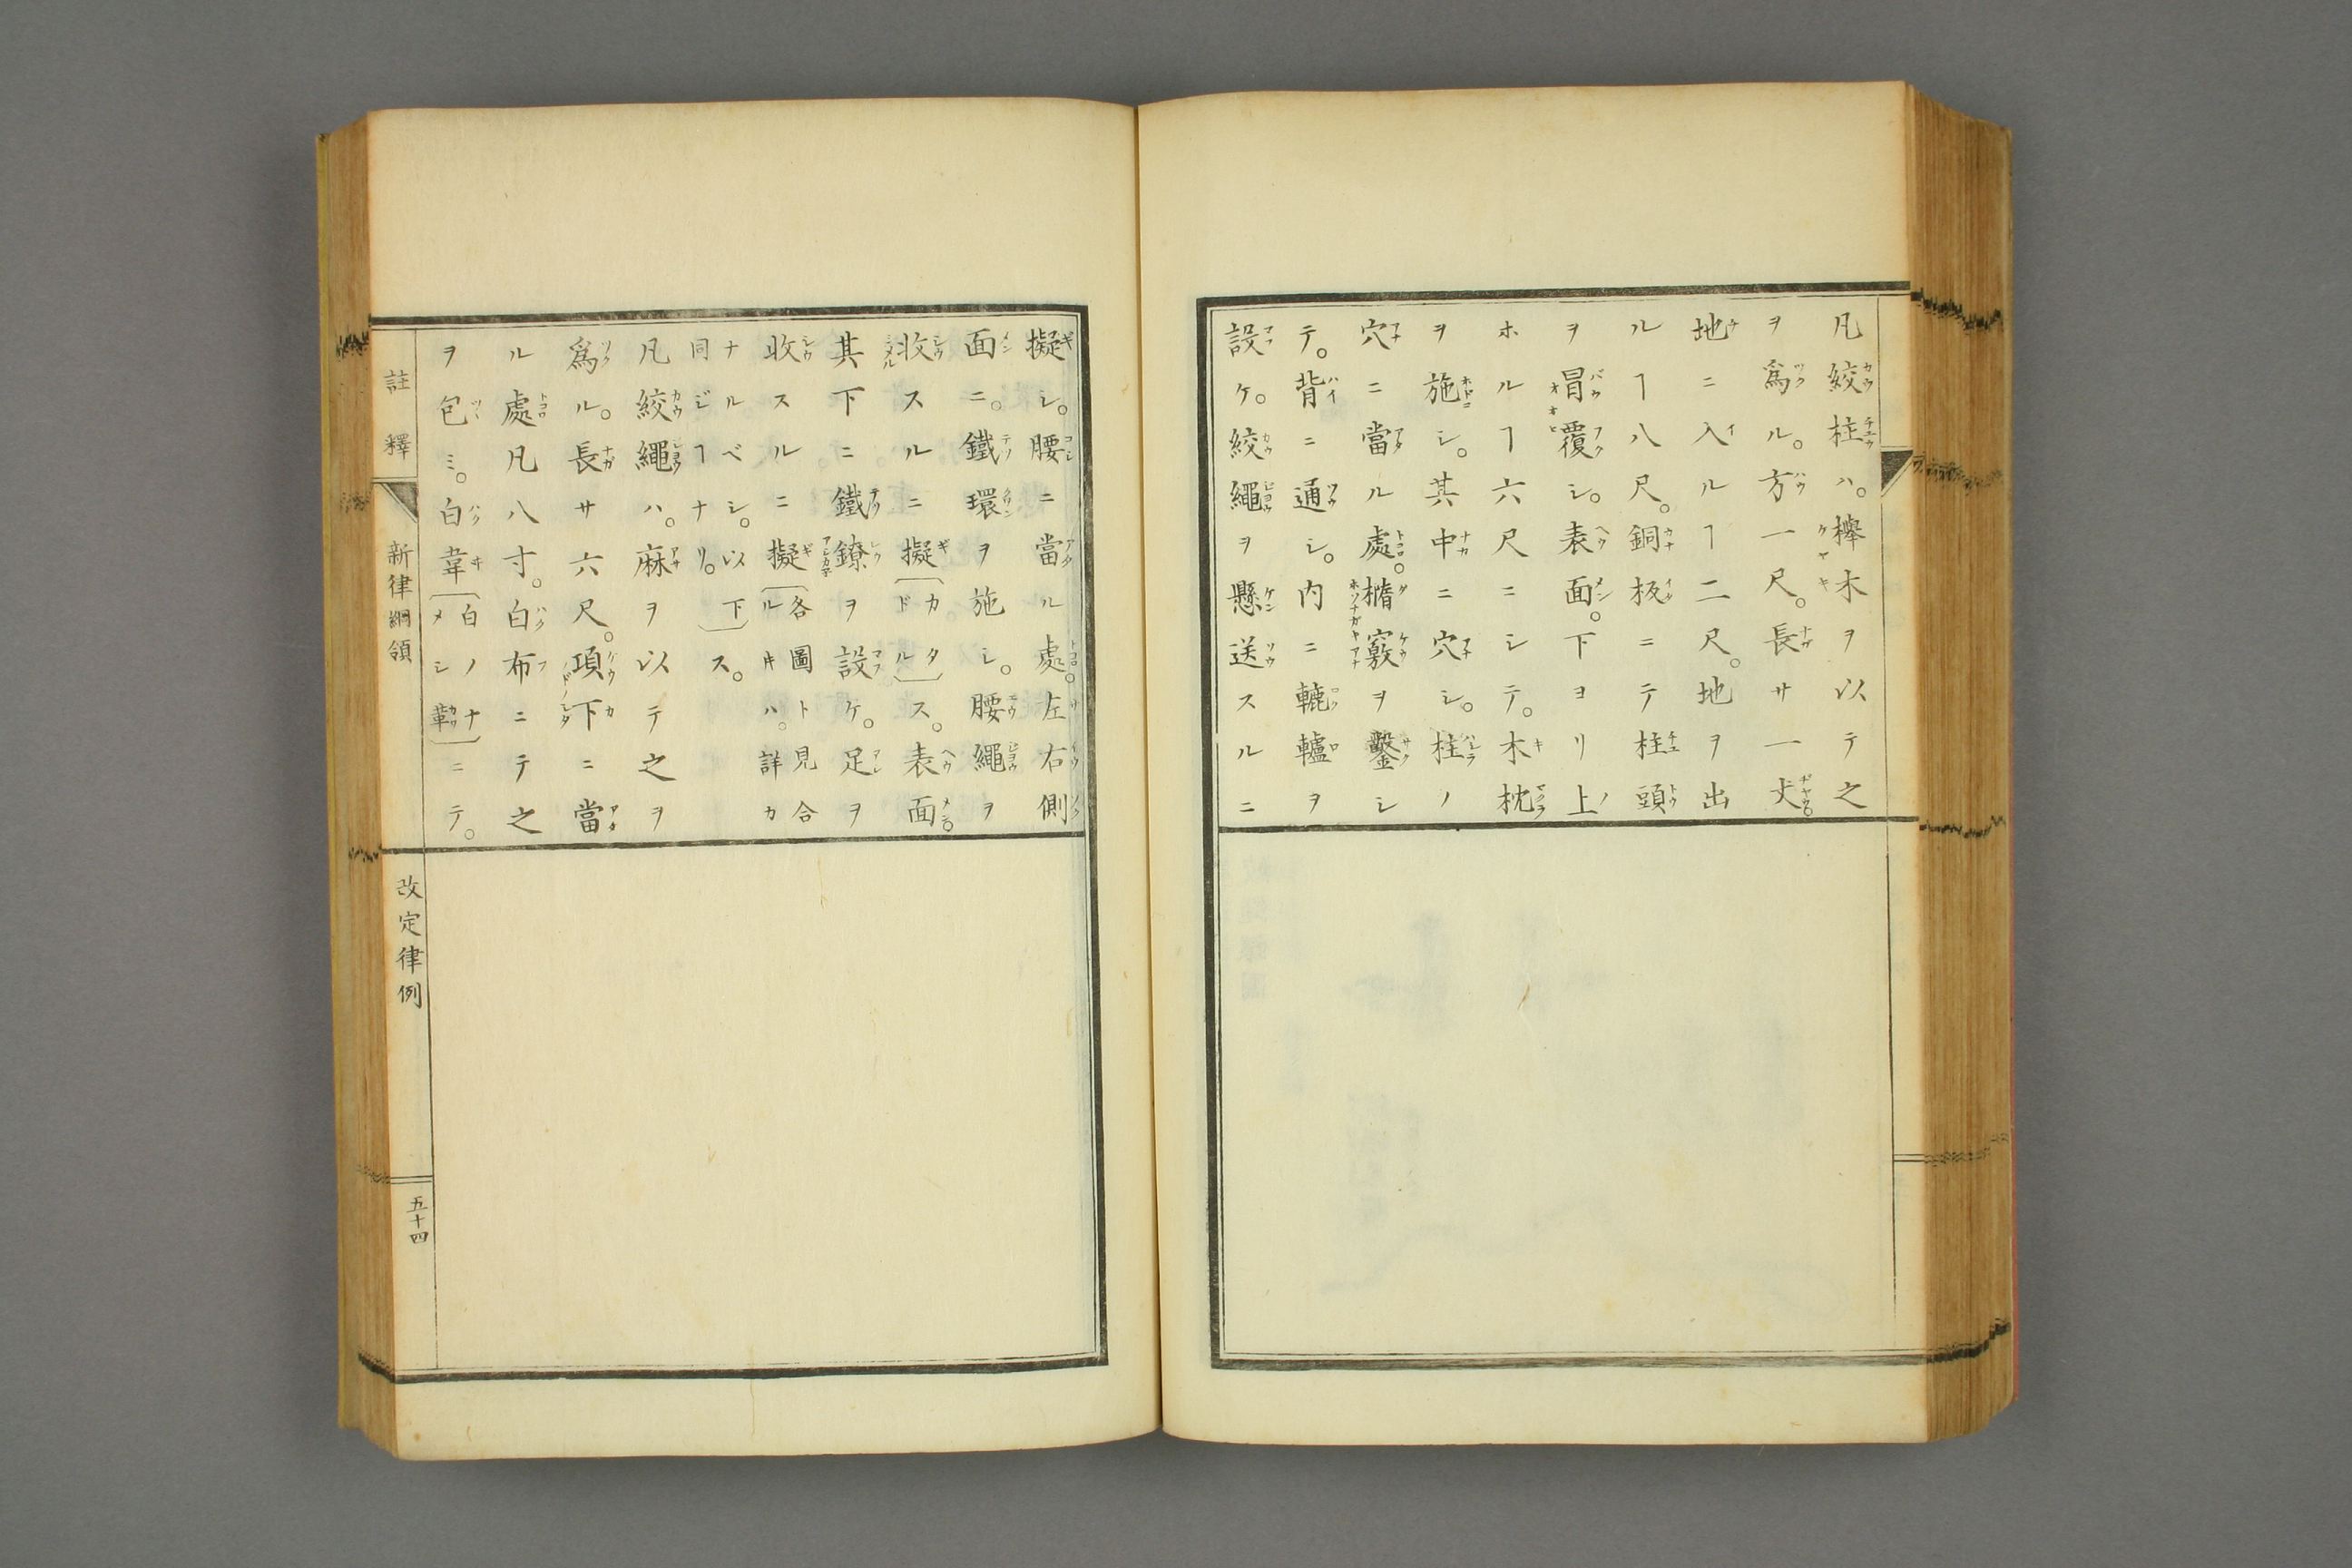 凡絞柱ハ。欅木ヲ以テ之
ヲ爲ル。方一尺。長サ一丈
地ニ入ルヿ二尺。地ヲ出
ルヿ八尺。銅板ニテ柱頭
ヲ冒覆シ。表面。下ヨリ上ノ
ホルヿ六尺ニシテ。木枕
ヲ施シ。其中ニ穴シ。柱ノ
穴ニ當ル處。楕竅ヲ鑿シ
テ。背ニ通シ。内ニ轆轤ヲ
設ケ。絞繩ヲ懸送スルニ
擬シ。腰ニ當ル處。左右側
面ニ。鐵環ヲ施シ。腰繩ヲ
收スルニ擬〔カタドル〕ス。表面。
其下ニ鐵鐐ヲ設ケ。足ヲ
收スルニ擬〔各圖ト見合ルキハ。詳カ
ナルベシ。以下同ジヿナリ。〕ス。
凡絞繩ハ。麻ヲ以テ之ヲ
爲ル。長サ六尺。項下ニ當
ル處凡八寸。白布ニテ之
ヲ包ミ。白韋〔白ノナメシ革〕ニテ。
註釋
新律綱領
改定律例
五十四